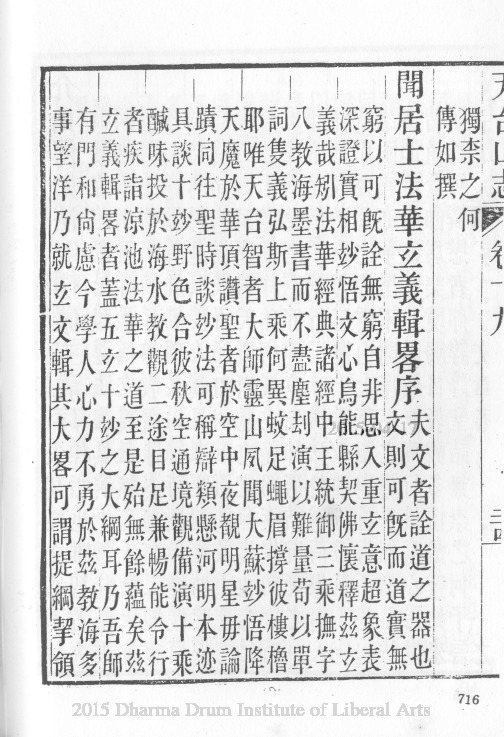 獨柰之何
傳如撰
聞居士法華玄義輯畧序
夫文者詮道之器也
文則可旣而道實無
窮以可旣詮無窮自非思入重玄意超象表
深證實相玅悟文心烏能縣契佛懷釋茲玄
義哉矧法華經典諸經中王統御三乘撫字
八教海墨書而不盡塵刦演以難量苟以單
詞隻義弘斯上乘何異蚊足蠅眉撐彼樓櫓
耶唯天台智者大師靈山夙聞大蘇玅悟降
天魔於華頂讚聖者於空中夜覩明星毋論
蹟同往聖時談玅法可稱辯類懸河明本迹
具談十玅野色合彼秋空通境觀備演十乘
醎味投於海水教觀二途目足兼暢能令行
者疾詣涼池法華之道至是始無餘蘊矣茲
玄義輯畧者蓋五玄十玅之大綱耳乃吾師
有門和尙慮今學人心力不勇於茲教海多
事望洋乃就玄文輯其大畧可謂提綱挈領
716
2015 Dharma Drum Institute of Liberal Arts